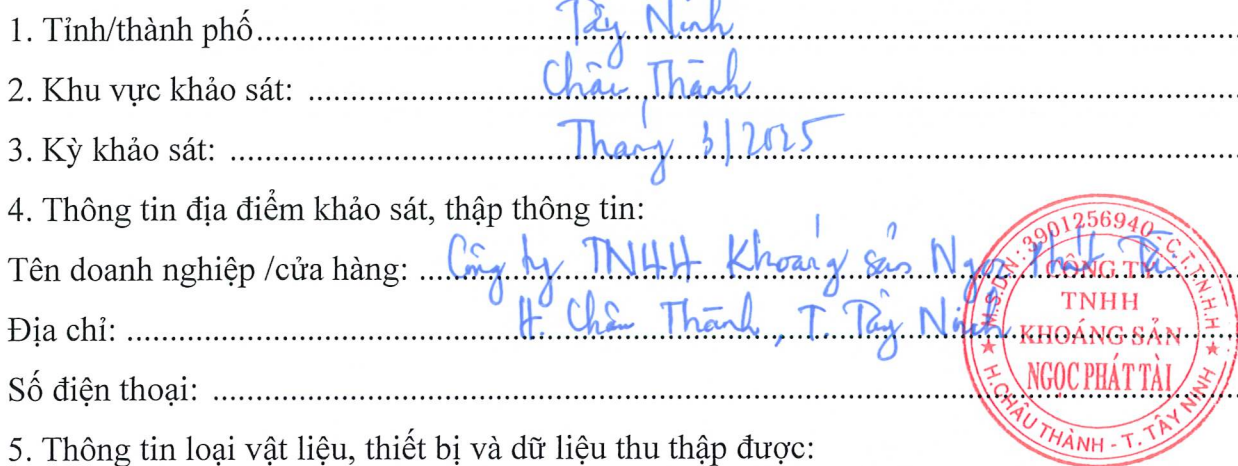 1. Tỉnh/thành phố Tây Ninh
2. Khu vực khảo sát: Châu Thành
3. Kỳ khảo sát: Tháng 3/2025
4. Thông tin địa điểm khảo sát, thập thông tin:
Tên doanh nghiệp /cửa hàng: Công ty TNHH Khoáng sản Ngọc Phát Tài
Địa chỉ: H. Châu Thành, T. Tây Ninh
Số điện thoại:
5. Thông tin loại vật liệu, thiết bị và dữ liệu thu thập được:
M.S.D.N: 3901256940 - C.T.T.N.H.H
CÔNG TY
TNHH
KHOÁNG SẢN
NGỌC PHÁT TÀI
H.CHÂU THÀNH - T. TÂY NINH